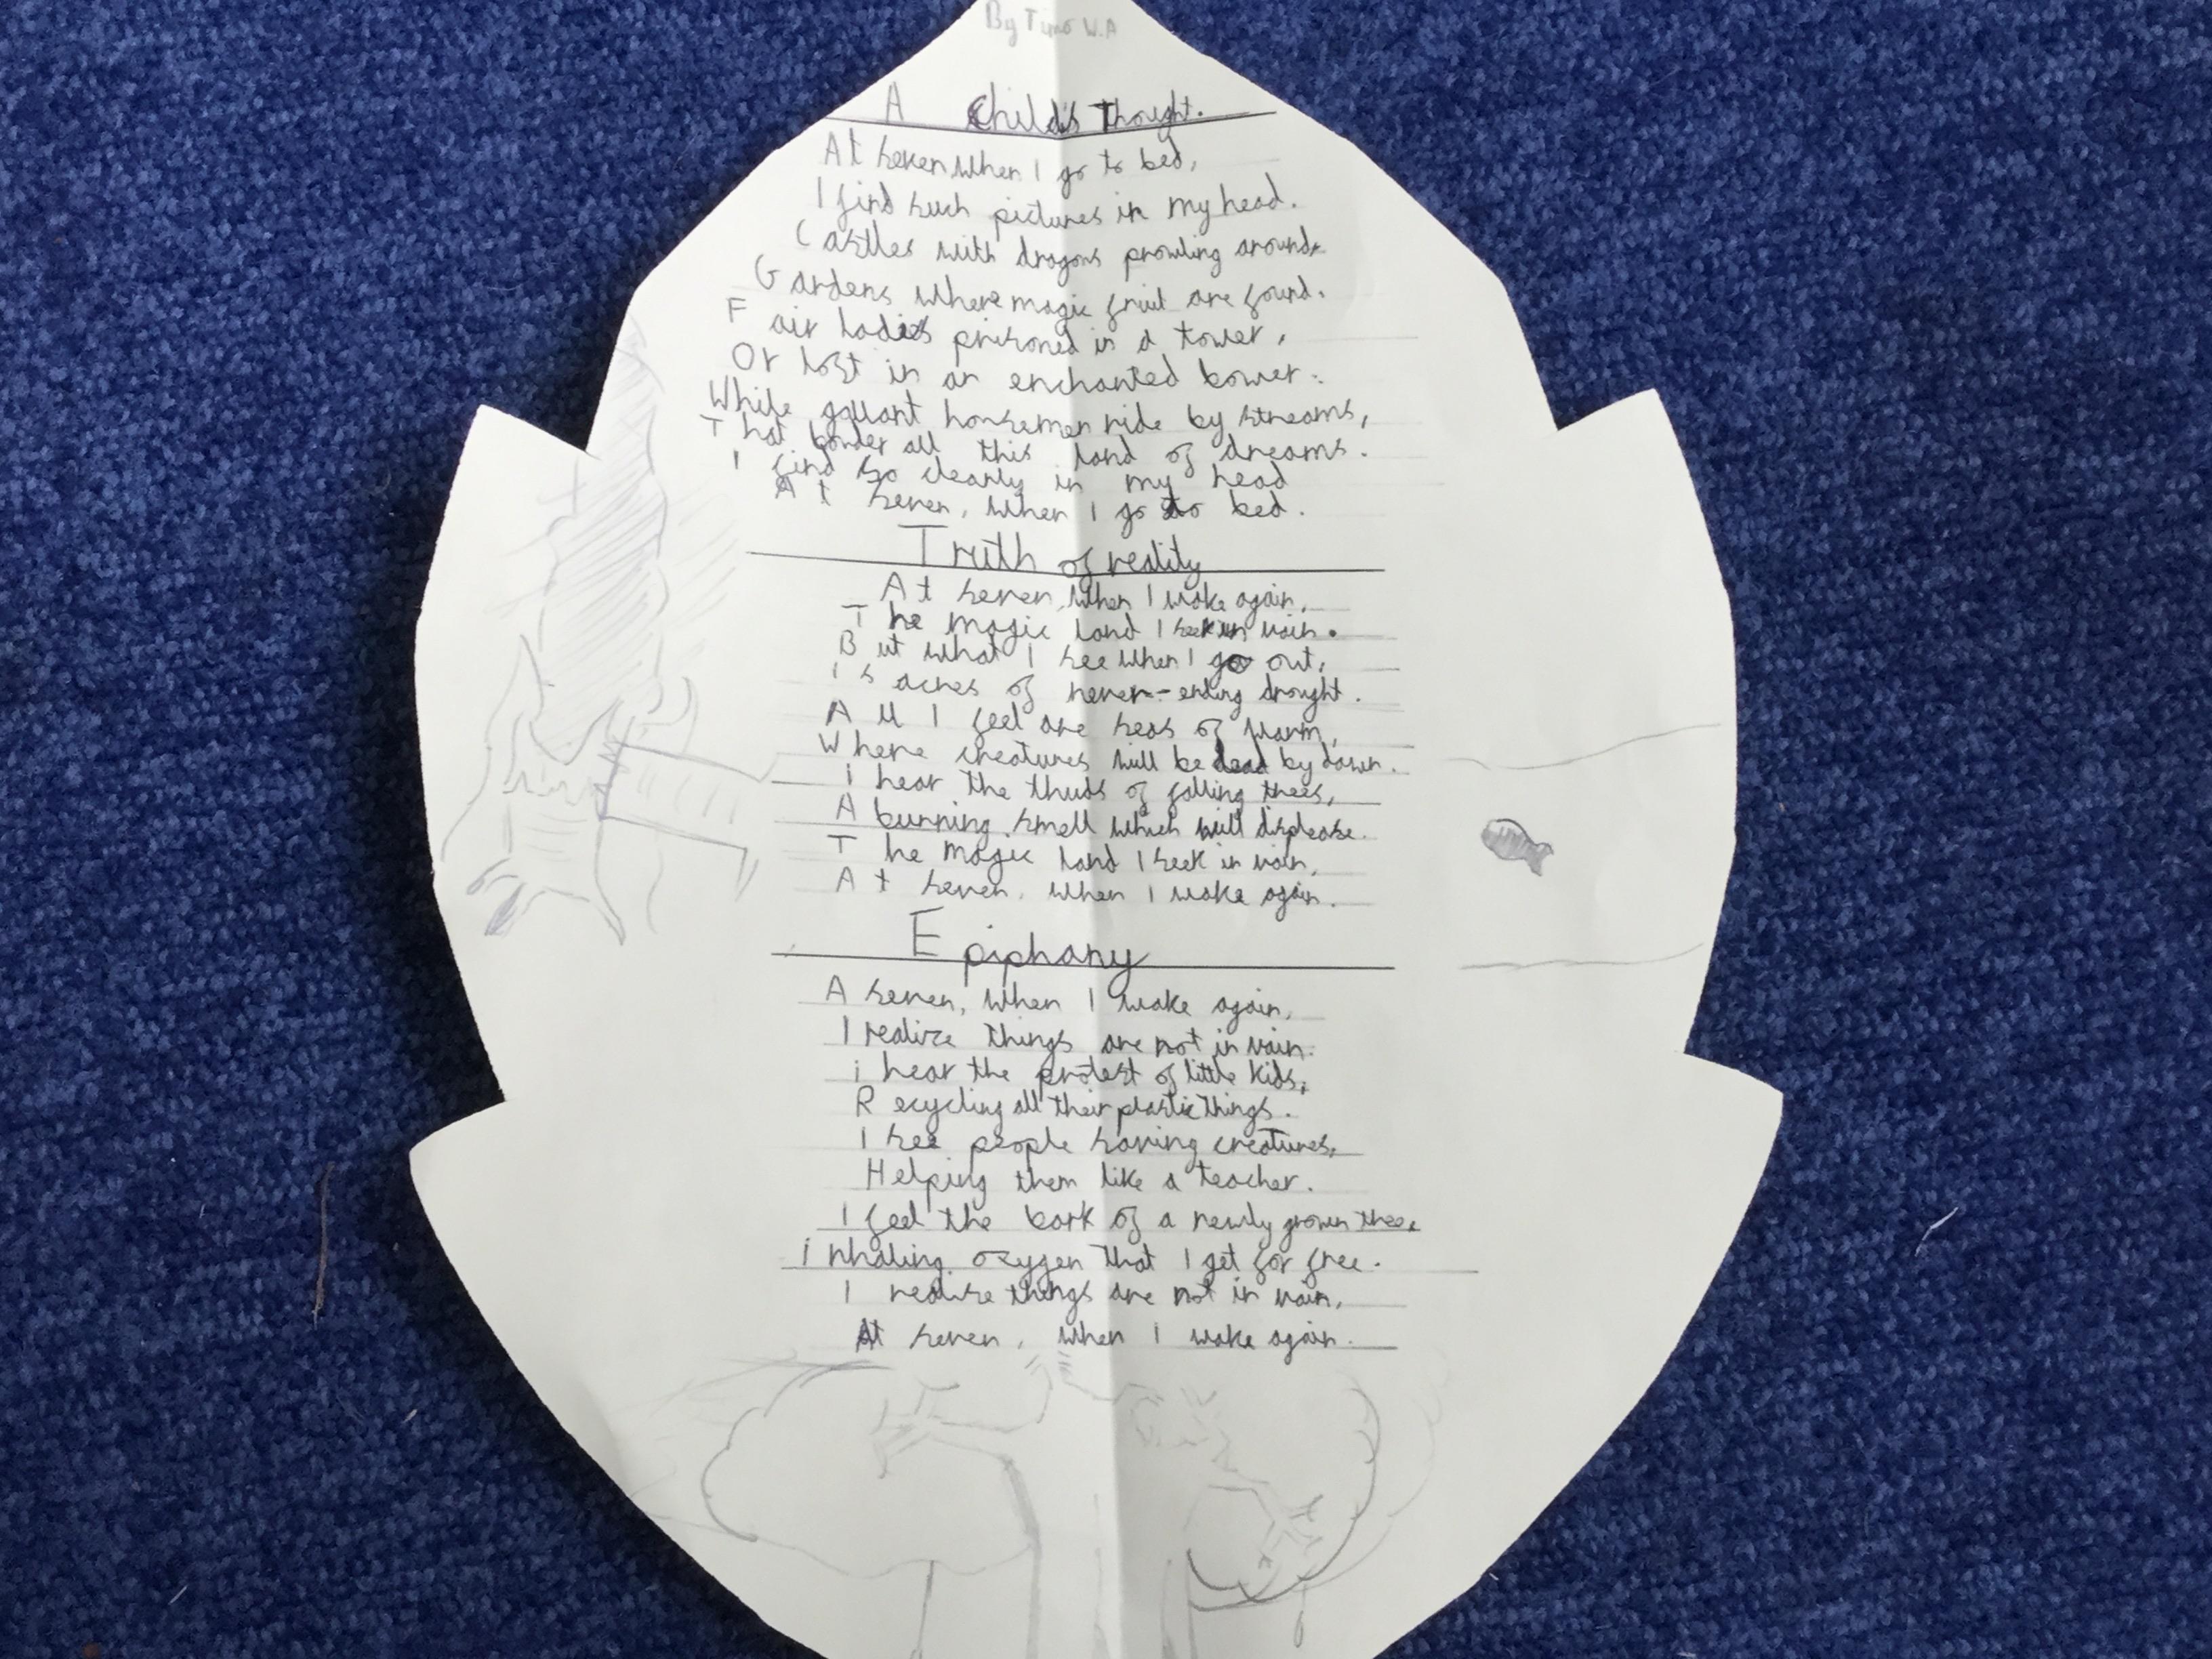 By Timo W.A
A Child's Thought.
At seven, when I go to bed,
I find such pictures in my head.
Castles with dragons prowling around,
Gardens where magic fruit are found.
Fair ladies prisoned in a tower,
Or lost in an enchanted bower:
While gallant horsemen ride by streams,
That border all this land of dreams.
I find so clearly in my head
At seven, when I go to bed.
Truth of reality
At seven, when I wake again,
The magic land I seek in vain.
But what I see when I go out,
Is acres of never-ending drought.
All I feel are seas of warm,
Where creatures will be dead by dawn.
I hear the thuds of falling trees,
A burning smell which will displease.
The magic land I seek in vain,
At seven, when I wake again.
Epiphany
A seven, when I wake again,
I realize things are not in vain.
i hear the protest of little kids,
Recycling all their plastic things.
I see people saving creatures,
Helping them like a teacher.
I feel the bark of a newly grown tree,
inhaling oxygen that I get for free.
I realise things are not in vain,
At seven, when I wake again.